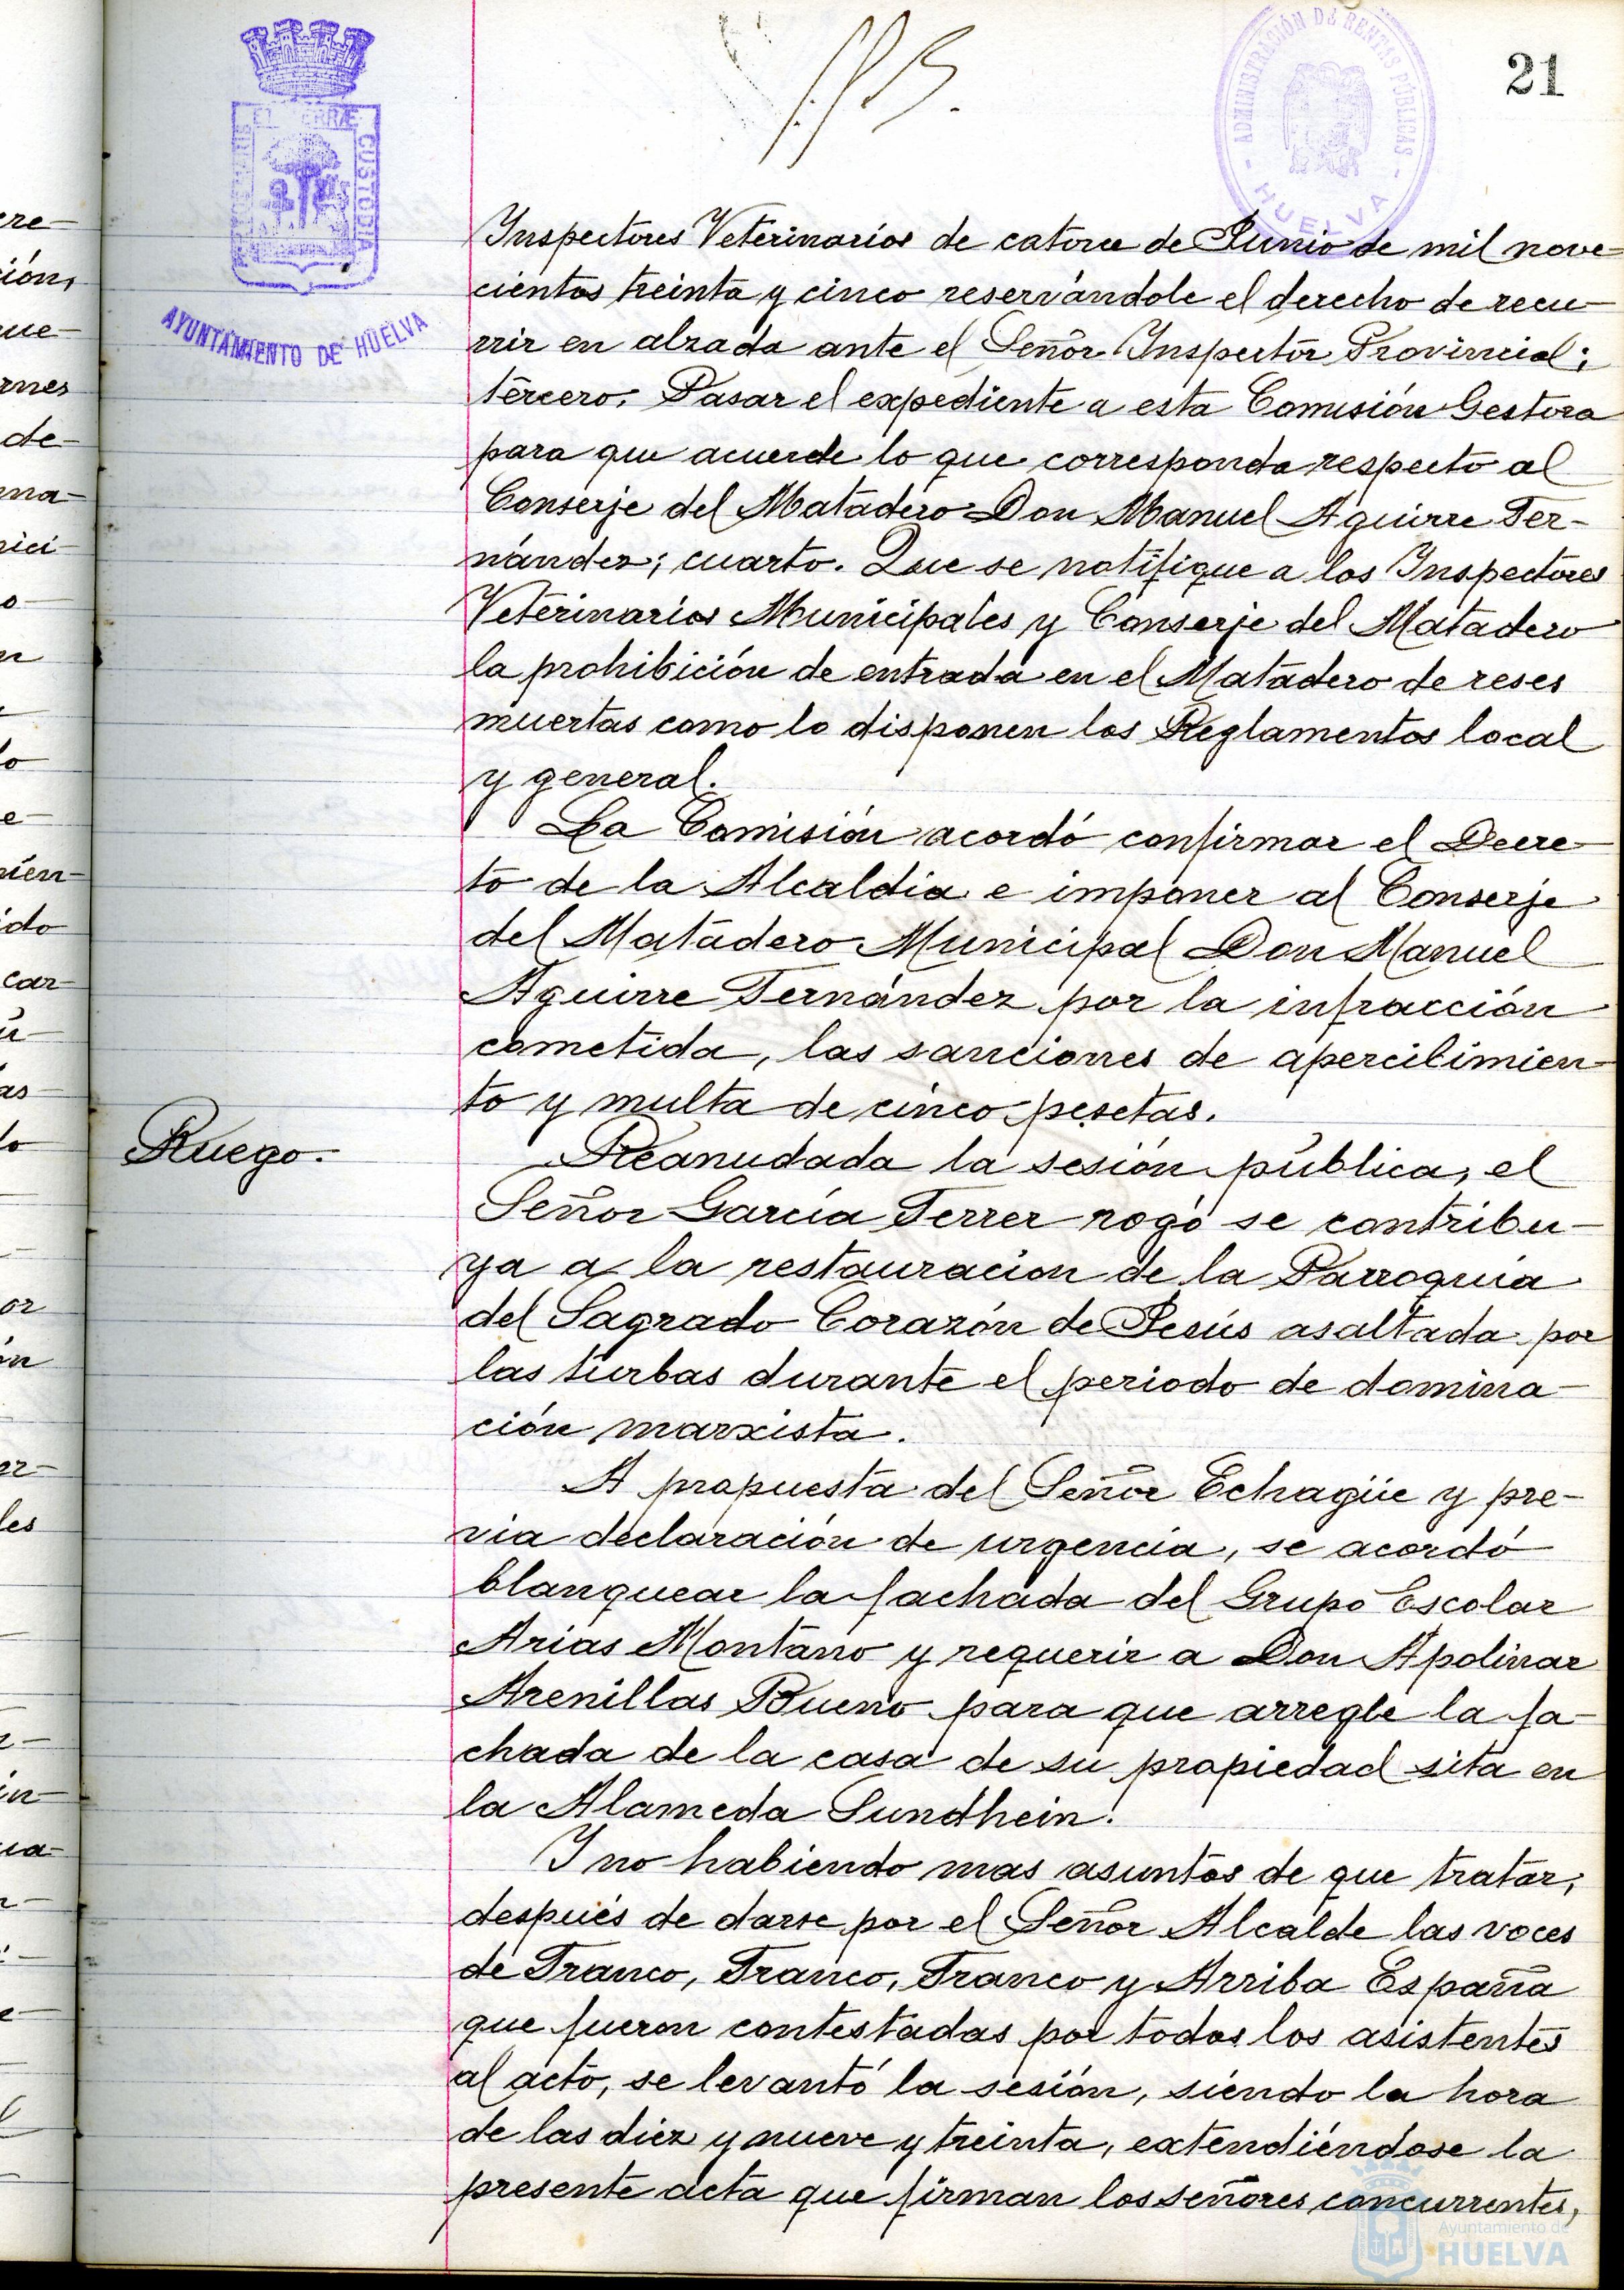 21
ADMINISTRACIÓN DE RENTAS PÚBLICAS
- HUELVA -
ET TERRÆ CUSTODIA
AYUNTAMIENTO DE HUELVA
Inspectores Veterinarios de catorce de Junio de mil nove-
cientos treinta y cinco reservándole el derecho de recu-
rrir en alzada ante el Señor Inspector Provincial;
tercero. Pasar el expediente a esta Comisión Gestora
para que acuerde lo que corresponda respecto al
Conserje del Matadero Don Manuel Aguirre Fer-
nández; cuarto. Que se notifique a los Inspectores
Veterinarios Municipales y Conserje del Matadero
la prohibición de entrada en el Matadero de reses
muertas como lo disponen los Reglamentos local
y general.
La Comisión acordó confirmar el Decre-
to de la Alcaldia e imponer al Conserje
del Matadero Municipal Don Manuel
Aguirre Fernández por la infracción
cometida, las sanciones de apercibimien-
to y multa de cinco pesetas.
Ruego.
Reanudada la sesión pública, el
Señor García Ferrer rogó se contribu-
ya a la restauracion de la Parroquia
del Sagrado Corazón de Jesús asaltada por
las turbas durante el periodo de domina-
ción marxista.
A propuesta del Señor Echagüe y pre-
via declaración de urgencia, se acordó
blanquear la fachada del Grupo Escolar
Arias Montano y requerir a Don Apolinar
Arenillas Bueno para que arregle la fa-
chada de la casa de su propiedad sita en
la Alameda Sundhein.
Y no habiendo mas asuntos de que tratar,
después de darse por el Señor Alcalde las voces
de Franco, Franco, Franco y Arriba España
que fueron contestadas por todos los asistentes
al acto, se levantó la sesión, siendo la hora
de las diez y nueve y treinta, extendiéndose la
presente acta que firman los señores concurrentes,
Ayuntamiento de
HUELVA